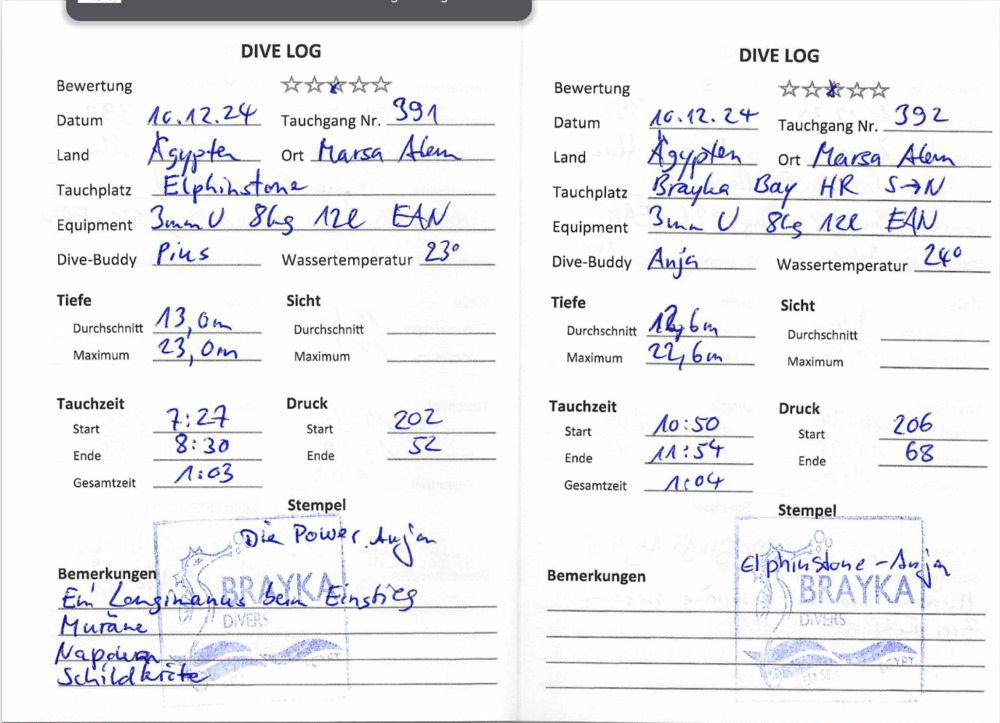 DIVE LOG
Bewertung
Datum 16.12.24 Tauchgang Nr. 391
Land Ägypten Ort Marsa Alem
Tauchplatz Elphinstone
Equipment 3mm U 8kg 12l EAN
Dive-Buddy Pius Wassertemperatur 23°
Tiefe Sicht
Durchschnitt 13,0m Durchschnitt
Maximum 23,0m Maximum
Tauchzeit Druck
Start 7:27 Start 202
Ende 8:30 Ende 52
Gesamtzeit 1:03
Stempel
Die Power Anjan
Bemerkungen
BRAYKA
Ein Longimanus beim Einstieg
DIVERS
Muräne
Napoleon
Schildkröte
DIVE LOG
Bewertung
Datum 16.12.24 Tauchgang Nr. 392
Land Ägypten Ort Marsa Alem
Tauchplatz Brayka Bay HR S→N
Equipment 3mm U 8kg 12l EAN
Dive-Buddy Anja Wassertemperatur 24°
Tiefe Sicht
Durchschnitt 12,6m Durchschnitt
Maximum 22,6m Maximum
Tauchzeit Druck
Start 10:50 Start 206
Ende 11:54 Ende 68
Gesamtzeit 1:04
Stempel
Elphinstone-Anja
Bemerkungen
BRAYKA
DIVERS
RED SEA EGYPT